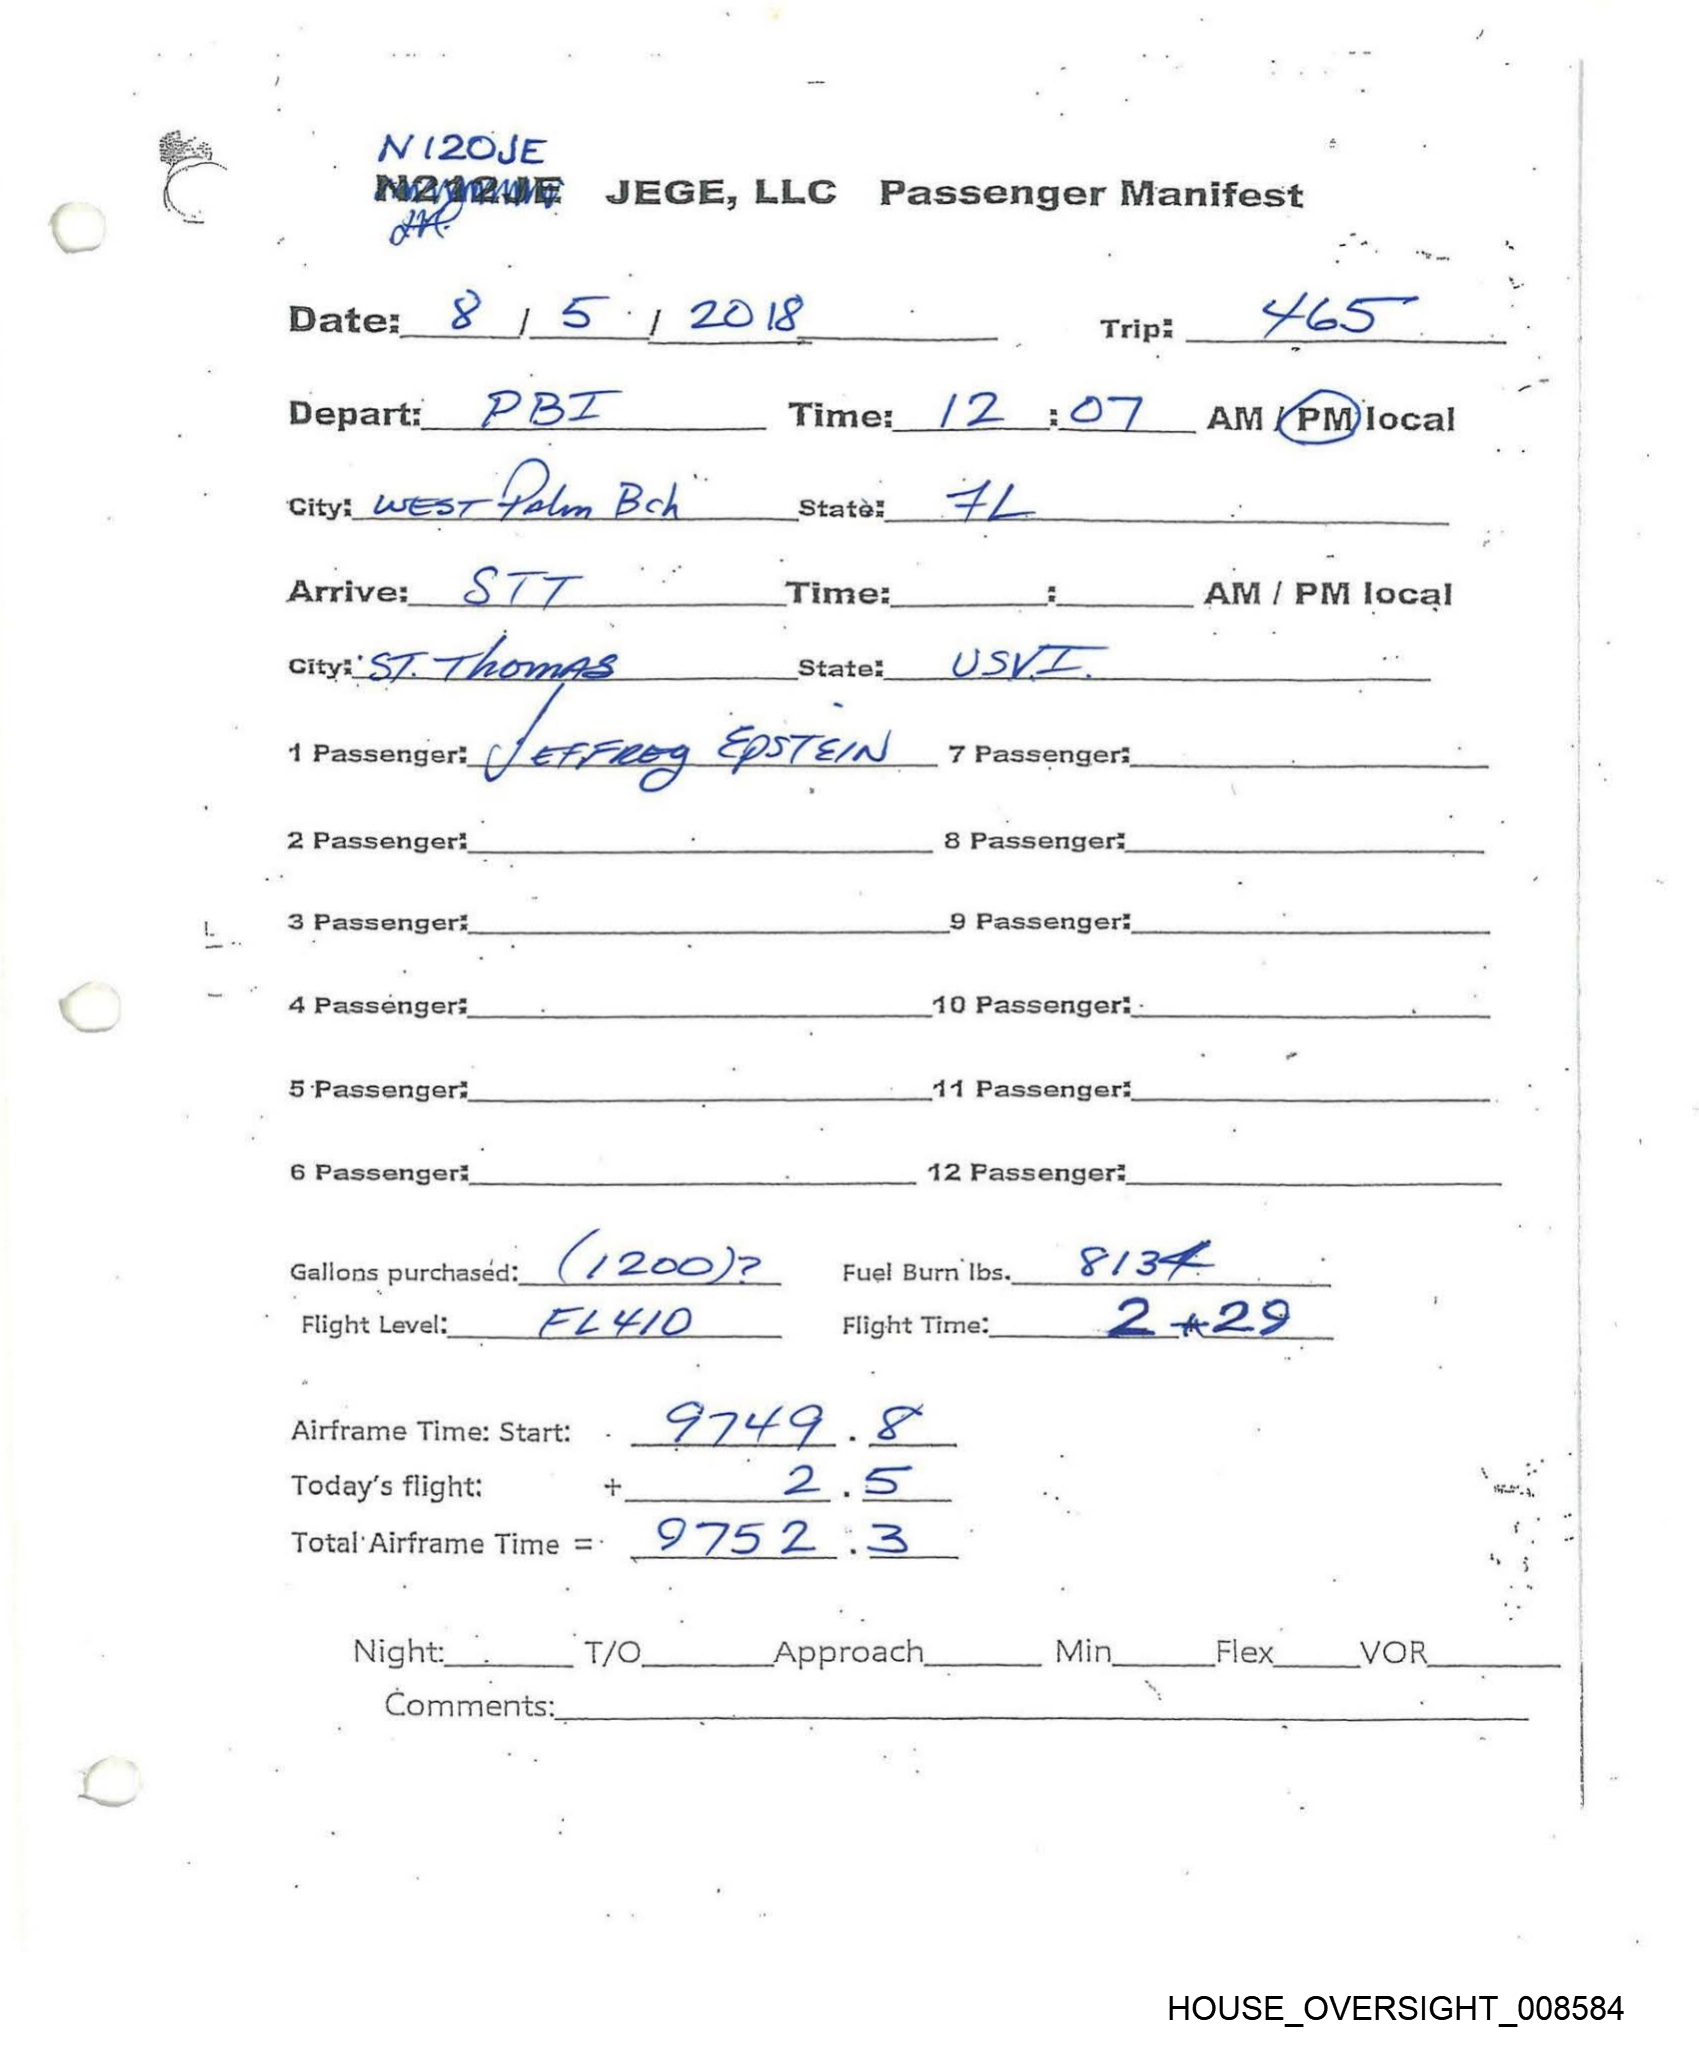 N120JE
N212JE JEGE, LLC Passenger Manifest
Date: 8 / 5 / 2018 Trip: 465
Depart: PBI Time: 12 : 07 AM / PM local
City: WEST Palm Bch State: FL
Arrive: STT Time: : AM / PM local
City: ST. Thomas State: USVI.
1 Passenger: JEFFREy EpSTEIN 7 Passenger:
2 Passenger: 8 Passenger:
3 Passenger: 9 Passenger:
4 Passenger: 10 Passenger:
5 Passenger: 11 Passenger:
6 Passenger: 12 Passenger:
Gallons purchased: (1200)? Fuel Burn lbs. 8134
Flight Level: FL410 Flight Time: 2 + 29
Airframe Time: Start: 9749 . 8
Today's flight: + 2 . 5
Total Airframe Time = 9752 . 3
Night: T/O Approach Min Flex VOR
Comments:
HOUSE_OVERSIGHT_008584